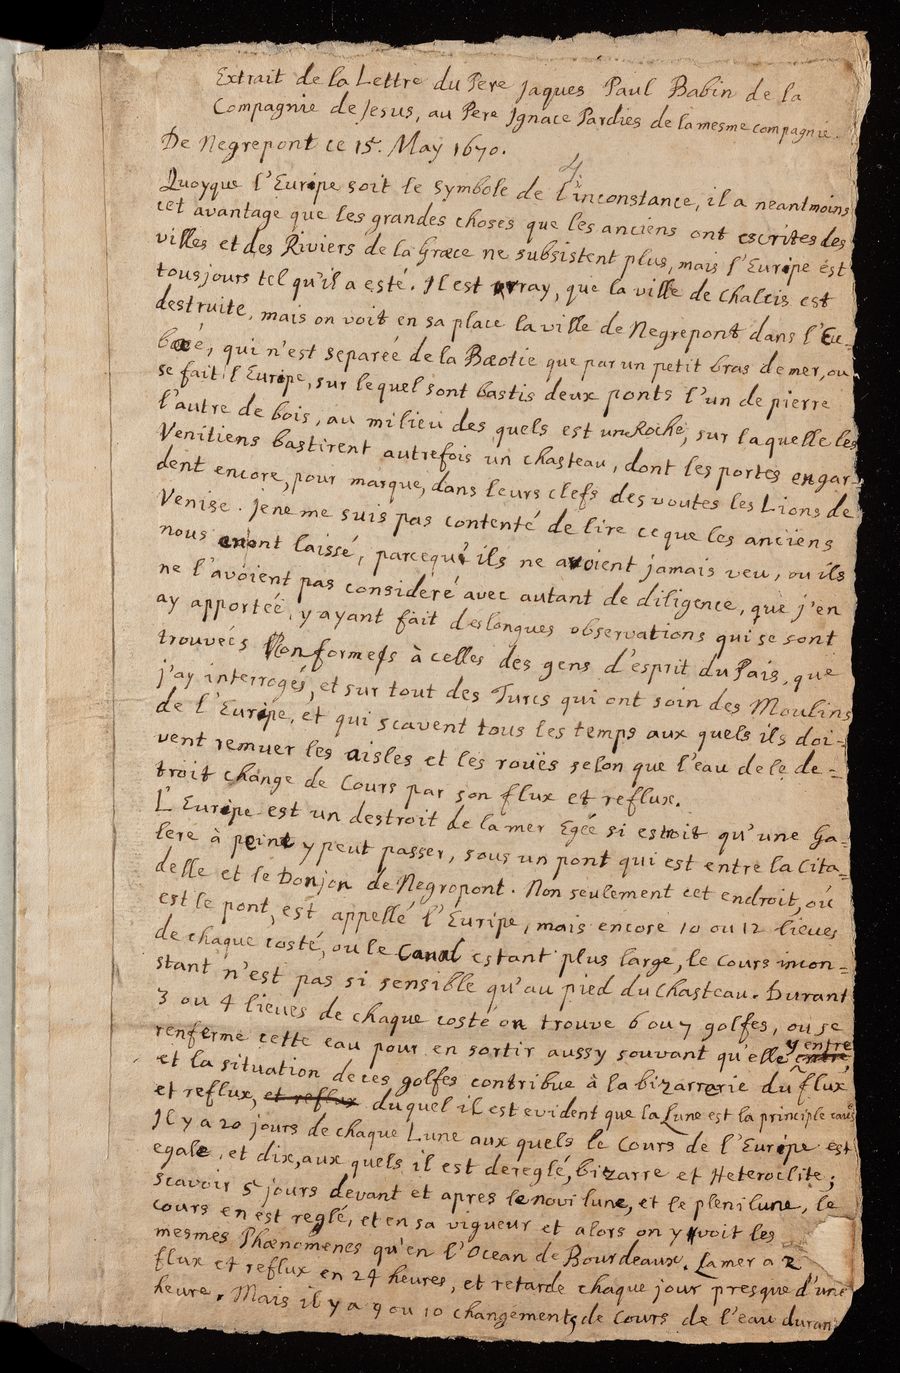 Extrait de la Lettre du Pere Jaques Paul Babin de la
Compagnie de Jesus, au Pere Ignace Pardies de la mesme compagnie.
De Negrepont ce 15. May 1670.
4.
Quoyque l'Euripe soit le symbole de l'inconstance, il a neantmoins
cet avantage que les grandes choses que les anciens ont escrites des
villes et des Riviers de la Græce ne subsistent plus, mais l'Euripe est
tousjours tel qu'il a esté. Il est vray, que la ville de Chalcis est
destruite, mais on voit en sa place la ville de Negrepont dans l'Eu=
bœé, qui n'est separée de la Bœotie que par un petit bras de mer, ou
se fait l'Euripe, sur lequel sont bastis deux ponts l'un de pierre
l'autre de bois, au milieu des quels est un Roche, sur laquelle les
Venitiens bastirent autrefois un chasteau, dont les portes en gar=
dent encore, pour marque, dans leurs clefs des voutes les Lions de
Venise. Je ne me suis pas contenté de lire ce que les anciens
nous en ont laissé, parcequ'ils ne avoient jamais veu, ou ils
ne l'avoient pas consideré avec autant de diligence, que j'en
ay apportée, y ayant fait des longues observations qui se sont
trouveés conformes à celles des gens d'esprit du Pais, que
j'ay interrogés, et sur tout des Turcs qui ont soin des Moulins
de l'Euripe, et qui scavent tous les temps aux quels ils doi=
vent remuer les aisles et les rouës selon que l'eau de le de=
troit change de Cours par son flux et reflux.
L'Euripe est un destroit de la mer Egée si estroit qu'une Ga=
lere à peine y peut passer, sous un pont qui est entre la Cita=
delle et le Donjon de Negropont. Non seulement cet endroit, où
est le pont, est appellé l'Euripe, mais encore 10 ou 12 lieues
de chaque costé, ou le Canal estant plus large, le Cours incon=
stant n'est pas si sensible qu'au pied du Chasteau. Durant
3 ou 4 lieues de chaque costé on trouve 6 ou 7 golfes, ou se
renferme cette eau pour en sortir aussy souvant qu'elle y entre entre,
et la situation de ces golfes contribue à la bizarrerie du flux
et reflux, et reflux duquel il est evident que la Lune est la principle caus
Il y a 20 jours de chaque Lune aux quels le Cours de l'Euripe est
egale, et dix, aux quels il est dereglé, bizarre et Heteroclite;
scavoir 5 jours devant et apres le novilune, et le plenilune, le
Cours en est reglé, et en sa vigueur et alors on y voit les
mesmes Phænomenes qu'en l'Ocean de Bourdeaux. La mer a 2
flux et reflux en 24 heures, et retarde chaque jour presque d'une
heure. Mais il y a 9 ou 10 changements de Cours de l'eau duran